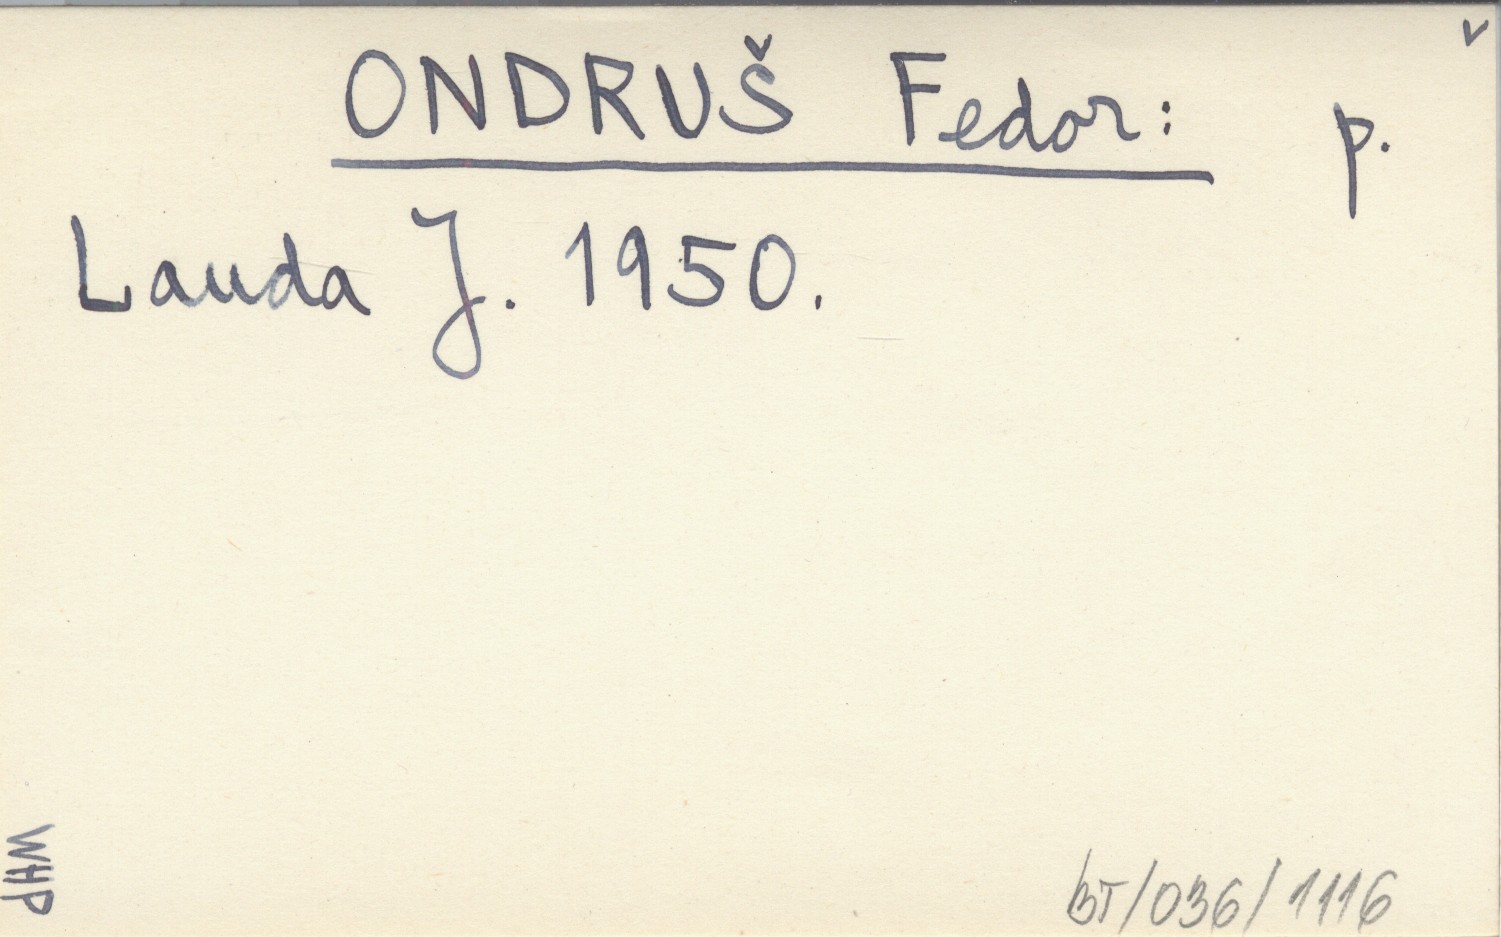 v
ONDRUŠ Fedor: p.
Lauda J. 1950.
MHP
BT/036/1116